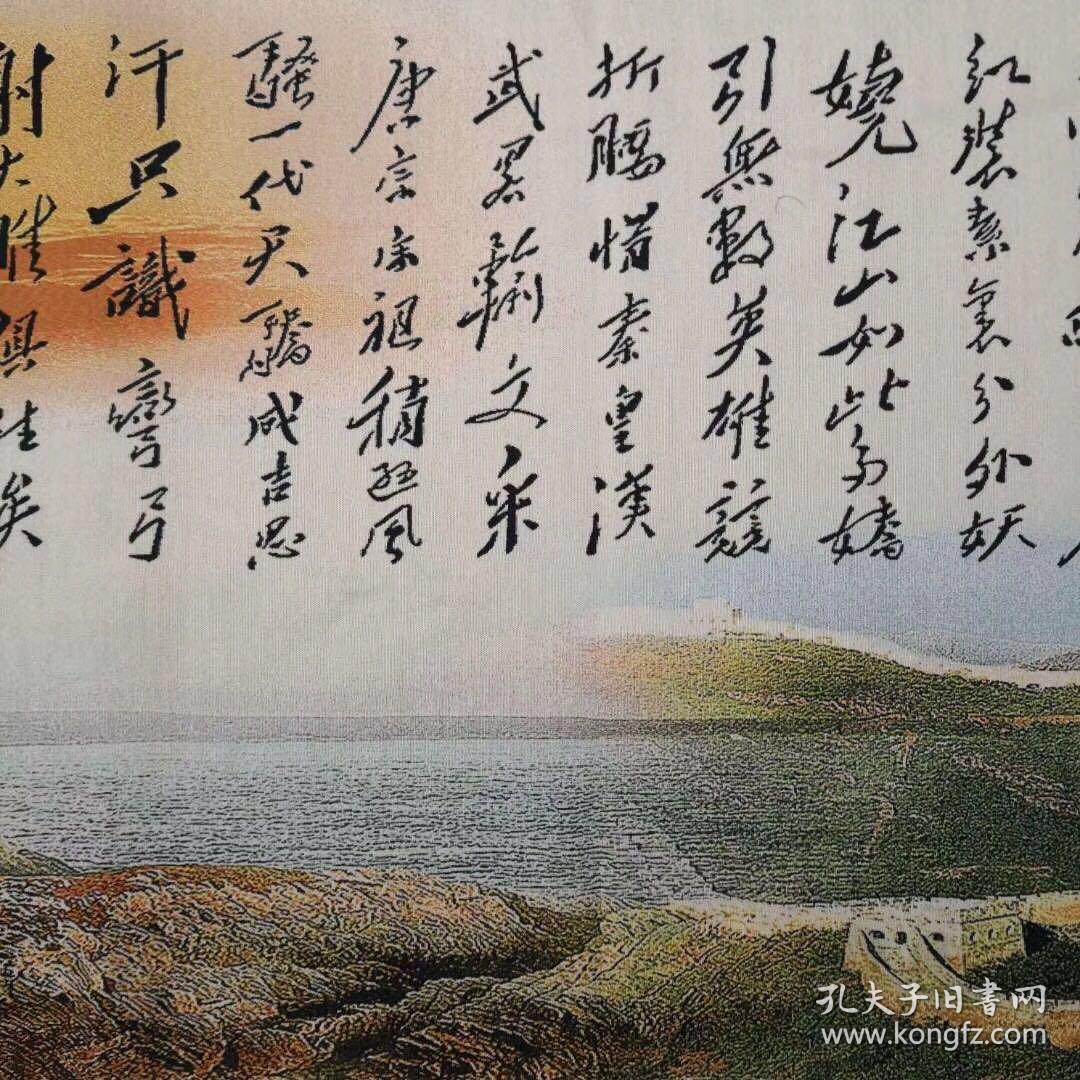 红装素裹分外妖
嬈江山如此多嬌
引無數英雄競
折腰惜秦皇漢
武畧輸文采
唐宗宋祖稍遜風
騷一代天驕成吉思
汗只識彎弓
射大雕俱往矣
孔夫子旧書网
www.kongfz.com